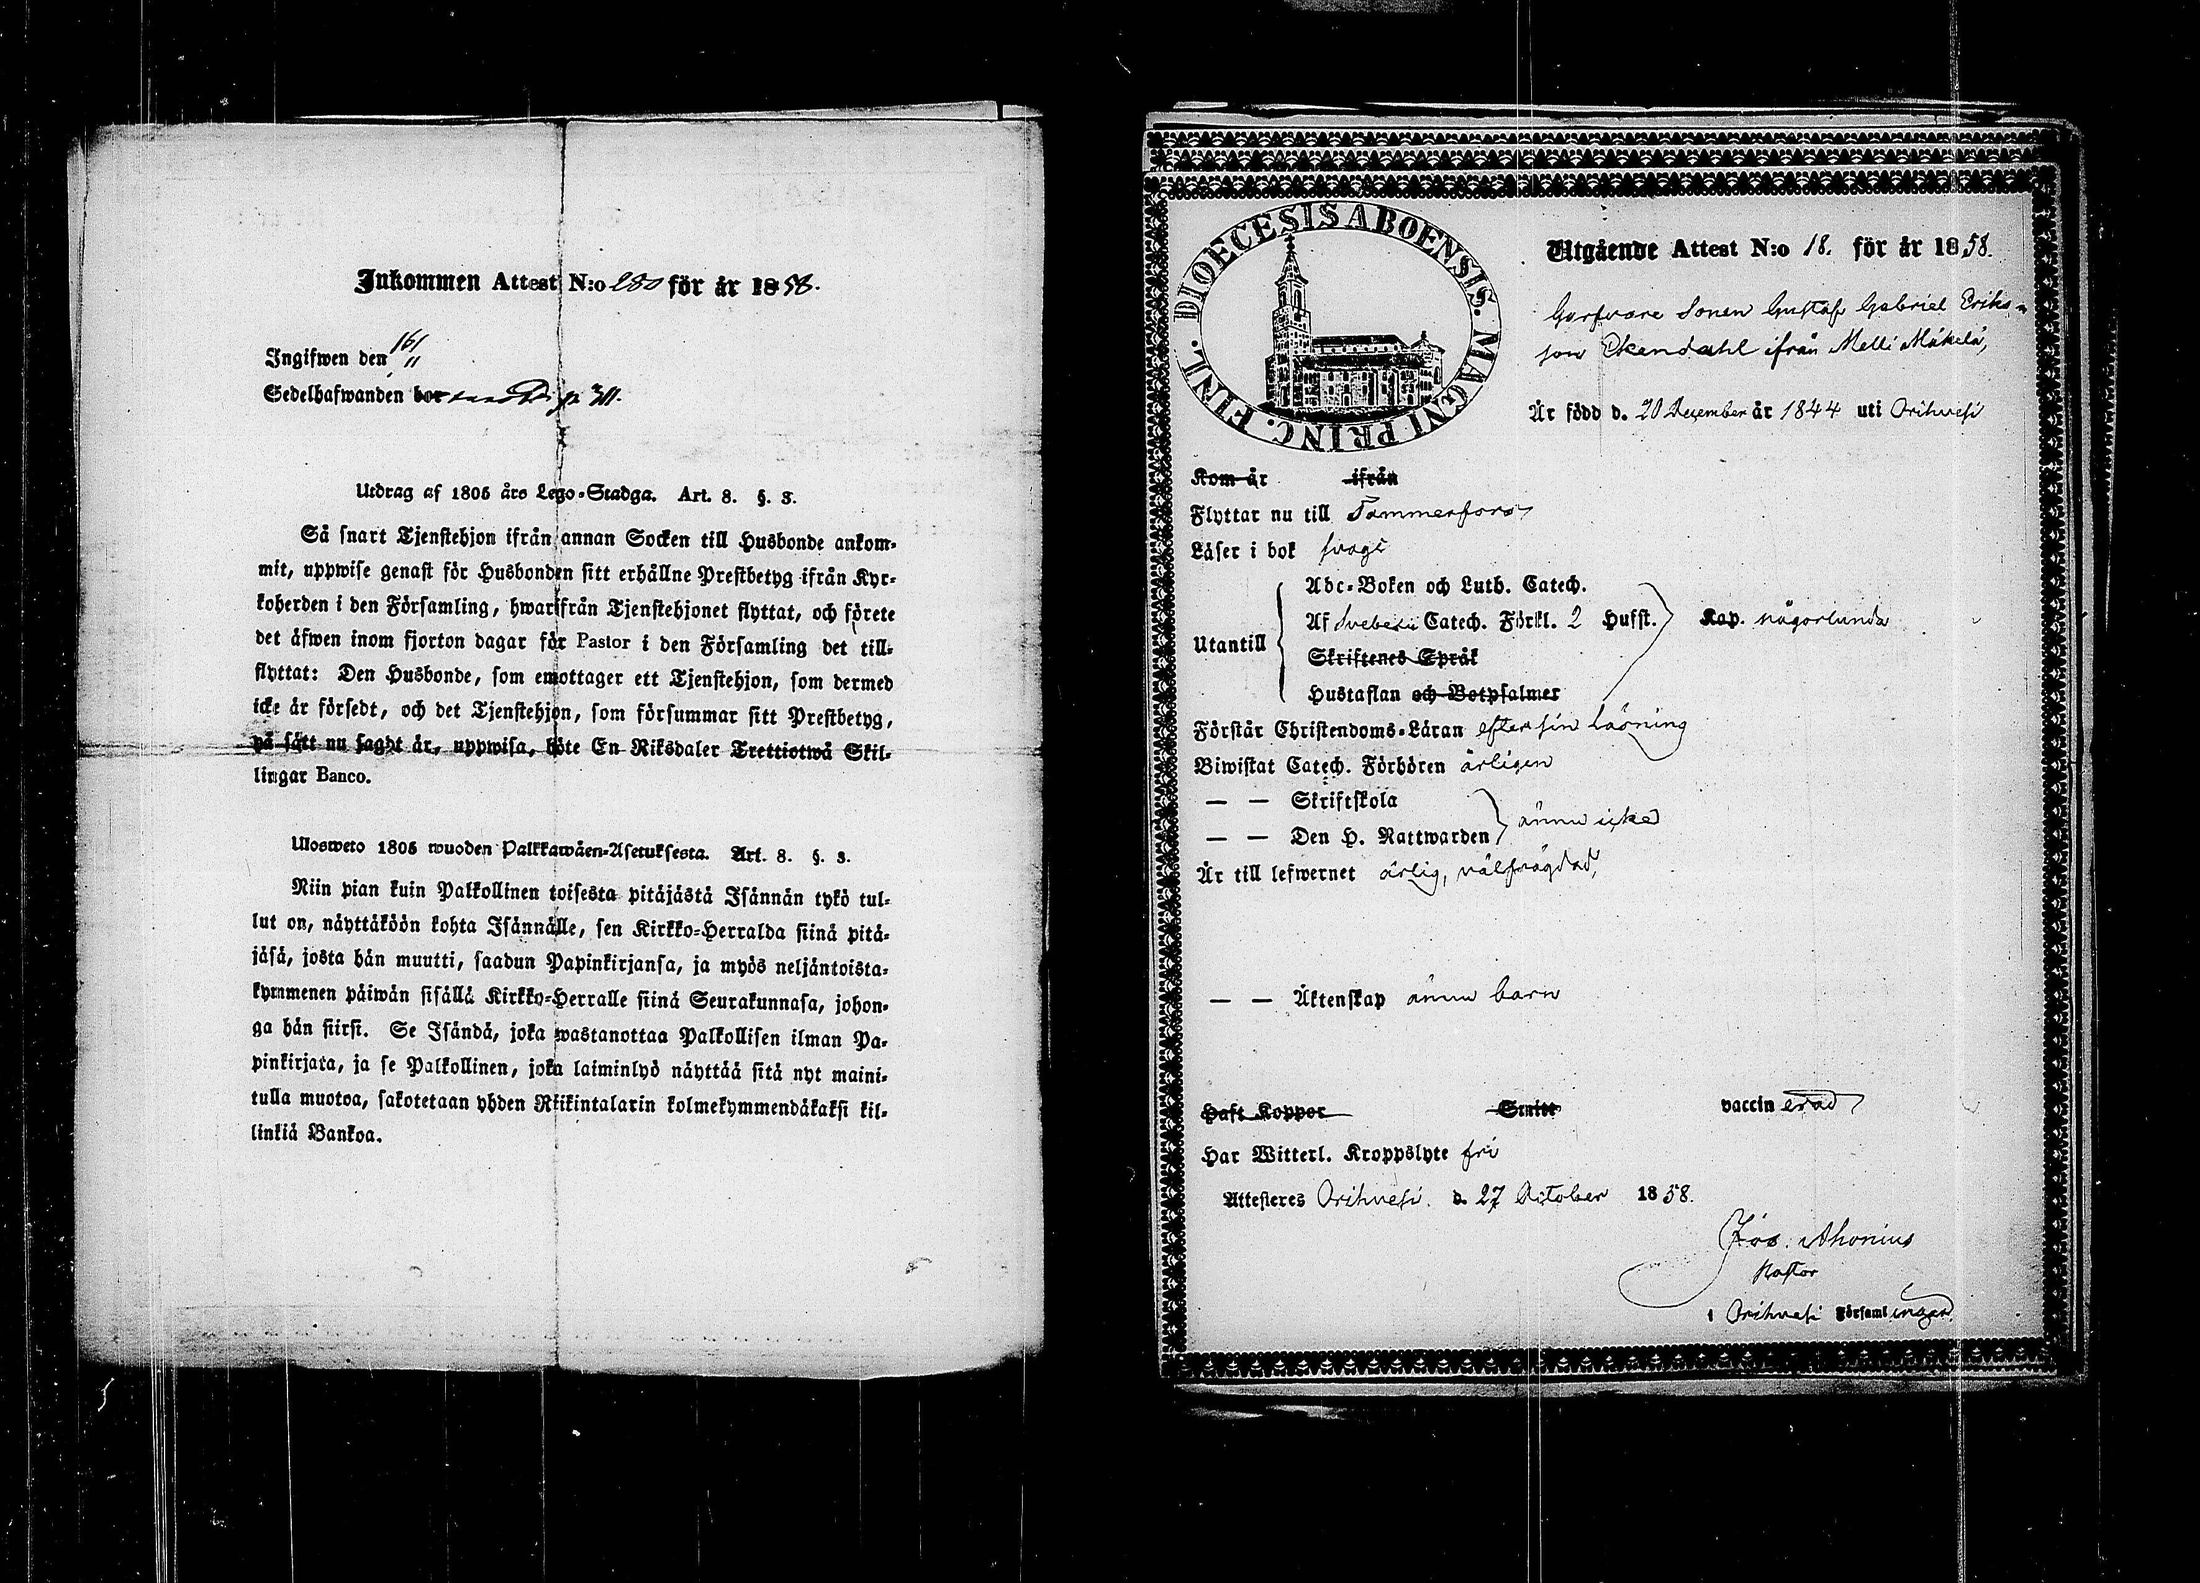 Inkommen Attest N:o 280 för år 1858.
Ingifwen den 16/11
Sedelhafwanden bor
Utdrag af 1805 års Lego-Stadga. Art. 8. §. 3.
Så snart Tjenstehjon ifrån annan Socken till Husbonde ankom-
mit, uppwise genast för Husbonden sitt erhållne Prestbetyg ifrån Kyr-
koherden i den Församling, hwarifrån Tjenstehjonet flyttat, och förete
det äfwen inom fjorton dagar för Pastor i den Församling det till-
flyttat: Den Husbonde, som emottager ett Tjenstehjon, som dermed
icke är försedt, och det Tjenstehjon, som försummar sitt Prestbetyg,
på sätt nu sagdt är, uppwisa, böte En Riksdaler Trettiotwå Skil-
lingar Banco.
Ulosweto 1805 wuoden Palkkawäen-Asetuksesta. Art. 8. §. 3.
Niin pian kuin Palkollinen toisesta pitäjästä Isännän tykö tul-
lut on, näyttäköön kohta Isännälle, sen Kirkko-Herralda siinä pitä-
jäsä, josta hän muutti, saadun Papinkirjansa, ja myös neljäntoista-
kymmenen päiwän sisällä Kirkko-Herralle siinä Seurakunnasa, johon-
ga hän siirsi. Se Isändä, joka wastanottaa Palkollisen ilman Pa-
pinkirjata, ja se Palkollinen, joka laiminlyö näyttää sitä nyt maini-
tulla muotoa, sakotetaan yhden Riikintalarin kolmekymmendäkaksi kil-
linkiä Bankoa.
DIOECESIS ABOENSIS. MAGNI PRINC. FINL.
Utgående Attest N:o 18. för år 1858.
Garfvare Sonen Gustaf Gabriel Eriks-
son Ekendahl ifrån Melli Mäkelä,
Är född d. 20 December år 1844 uti Orihvesi
Kom år ifrån
Flyttar nu till Tammerfors
Läser i bok svagt
Abc-Boken och Luth. Catech.
Utantill Af Svebelii Catech. Förkl. 2 Hufst. Kap. någorlunda
Skriftenes Språk
Hustaflan och Botpsalmer
Förstår Christendoms-Läran efter sin läsning
Biwistat Catech. Förhören årligen
— — Skriftskola
— — Den H. Nattwarden ännu icke
Är till lefwernet ärlig, välfrägdad,
— — Äktenskap ännu barn
Haft Koppor Smitt vaccinerad
Har Witterl. Kroppslyte fri
Attesteres Orihvesi. d. 27 October 1858.
Jos. Ahonius
Pastor
i Orihvesi Församlingen.